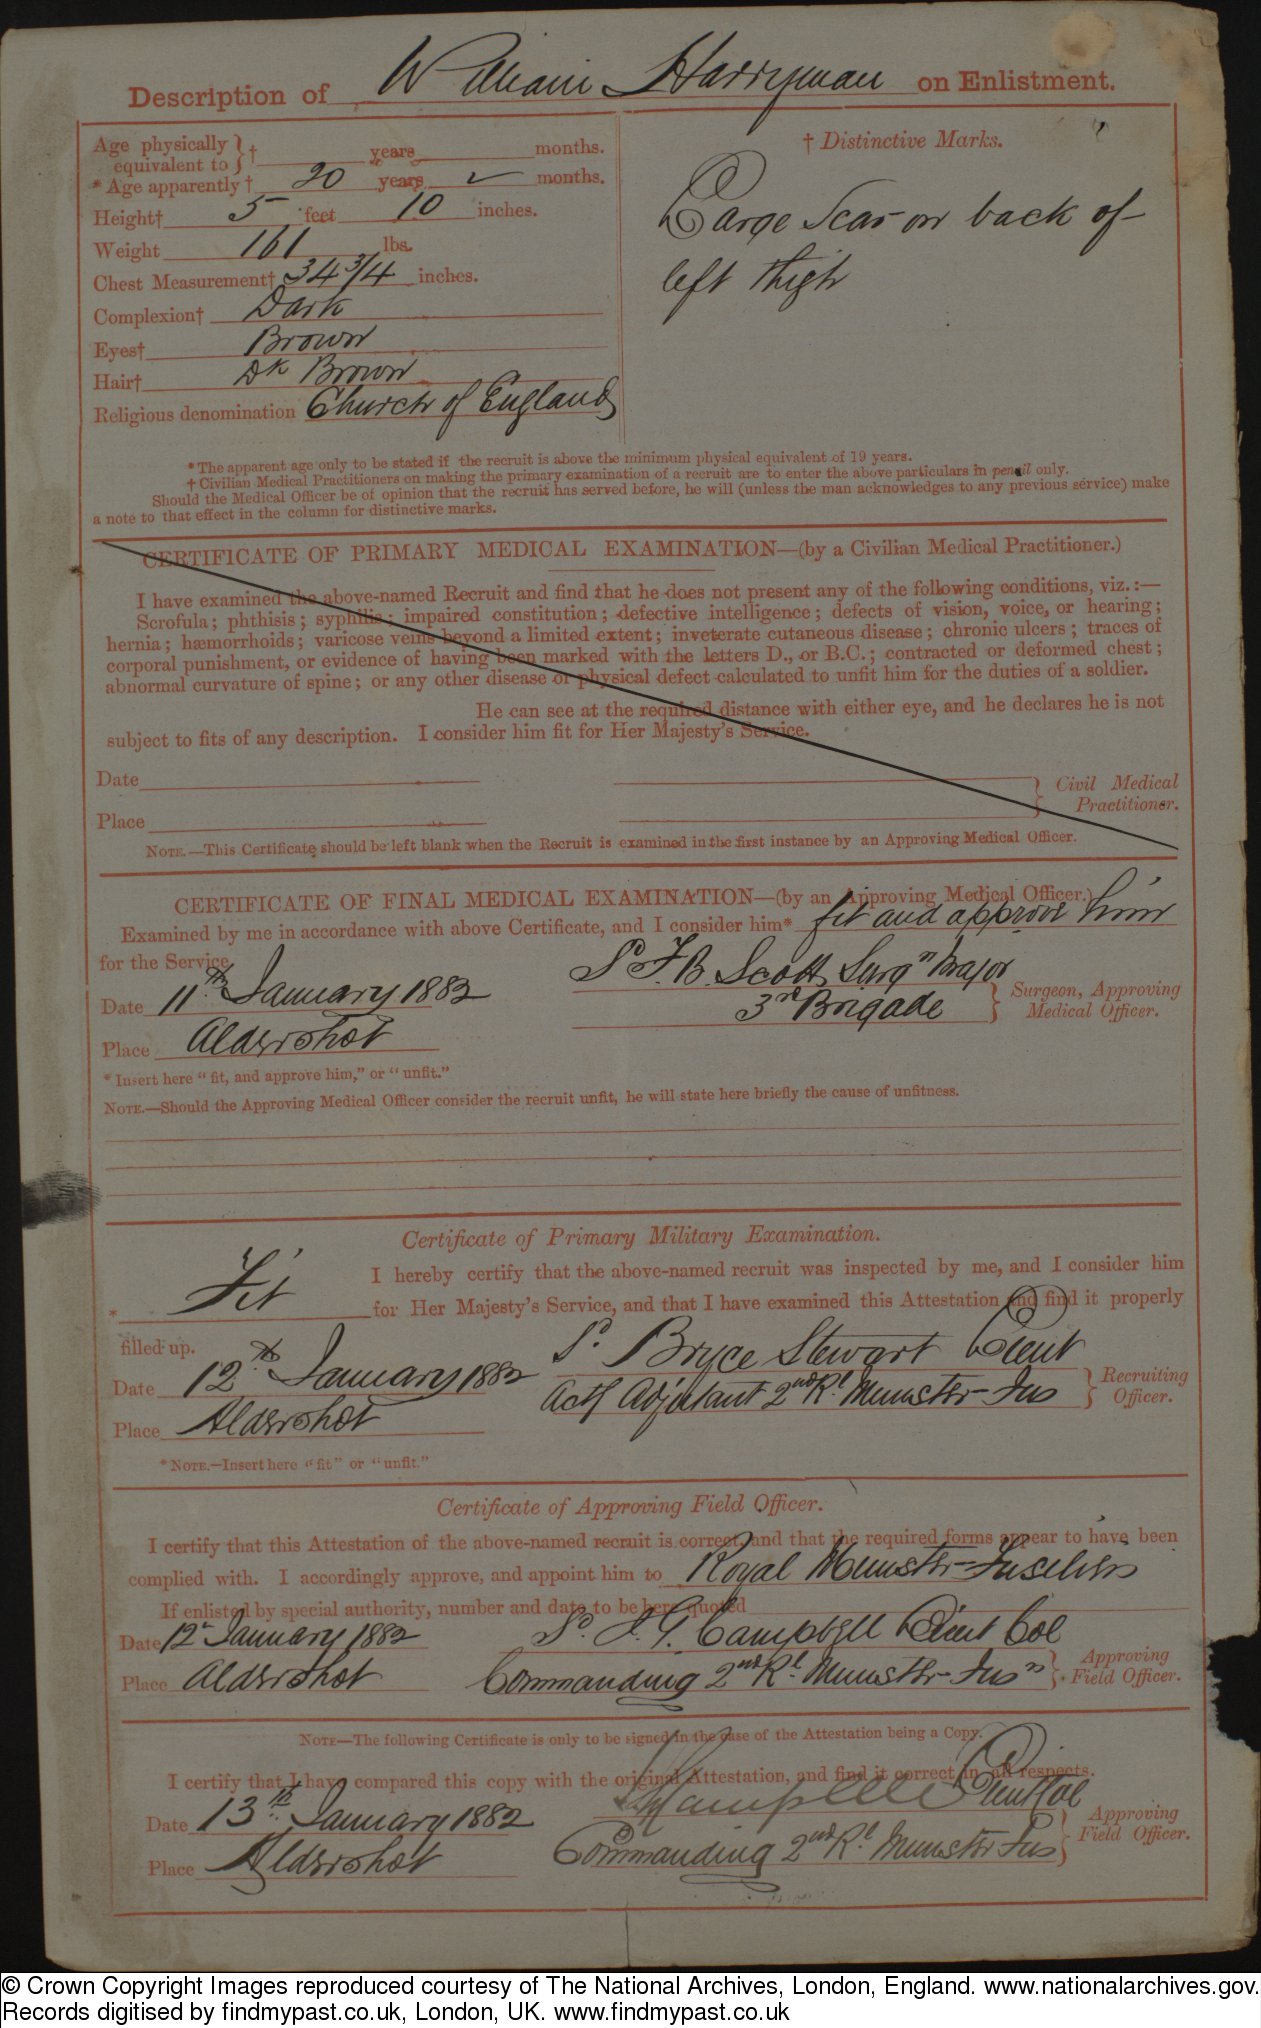 Description of William Harryman on Enlistment.
Age physically equivalent to } † years months.
* Age apparently † 20 years ✓ months.
Height† 5 feet 10 inches.
Weight 161 lbs.
Chest Measurement† 34 3/4 inches.
Complexion† Dark
Eyes† Brown
Hair† Dk Brown
Religious denomination Church of England
† Distinctive Marks.
Large Scar on back of
left thigh
* The apparent age only to be stated if the recruit is above the minimum physical equivalent of 19 years.
† Civilian Medical Practitioners on making the primary examination of a recruit are to enter the above particulars in pencil only.
Should the Medical Officer be of opinion that the recruit has served before, he will (unless the man acknowledges to any previous service) make
a note to that effect in the column for distinctive marks.
CERTIFICATE OF PRIMARY MEDICAL EXAMINATION—(by a Civilian Medical Practitioner.)
I have examined the above-named Recruit and find that he does not present any of the following conditions, viz.:—
Scrofula; phthisis; syphilis; impaired constitution; defective intelligence; defects of vision, voice, or hearing;
hernia; hæmorrhoids; varicose veins beyond a limited extent; inveterate cutaneous disease; chronic ulcers; traces of
corporal punishment, or evidence of having been marked with the letters D., or B.C.; contracted or deformed chest;
abnormal curvature of spine; or any other disease or physical defect calculated to unfit him for the duties of a soldier.
He can see at the required distance with either eye, and he declares he is not
subject to fits of any description. I consider him fit for Her Majesty's Service.
Date
Place
Civil Medical
Practitioner.
NOTE.—This Certificate should be left blank when the Recruit is examined in the first instance by an Approving Medical Officer.
CERTIFICATE OF FINAL MEDICAL EXAMINATION—(by an Approving Medical Officer.)
Examined by me in accordance with above Certificate, and I consider him* fit and approve him
for the Service.
Date 11th January 1882
Place Aldershot
Sd F. B. Scott, Surgn Major
3rd Brigade
Surgeon, Approving
Medical Officer.
* Insert here "fit, and approve him," or "unfit."
NOTE.—Should the Approving Medical Officer consider the recruit unfit, he will state here briefly the cause of unfitness.
Certificate of Primary Military Examination.
I hereby certify that the above-named recruit was inspected by me, and I consider him
* Fit for Her Majesty's Service, and that I have examined this Attestation and find it properly
filled up.
Date 12th January 1882
Place Aldershot
Sd. Bryce Stewart Lieut
Actg Adjutant 2nd Rl. Munster Fus
Recruiting
Officer.
* NOTE.—Insert here "fit" or "unfit."
Certificate of Approving Field Officer.
I certify that this Attestation of the above-named recruit is correct, and that the required forms appear to have been
complied with. I accordingly approve, and appoint him to Royal Munster Fuseliers
If enlisted by special authority, number and date to be here quoted
Date 12 January 1882
Place Aldershot
Sd. J. G. Campbell Lieut Col
Commanding 2nd Rl. Munster Fusn
Approving
Field Officer.
NOTE—The following Certificate is only to be signed in the case of the Attestation being a Copy.
I certify that I have compared this copy with the original Attestation, and find it correct in all respects.
Date 13th January 1882
Place Aldershot
Campbell Lieut Col
Commanding 2nd Rl. Munster Fus
Approving
Field Officer.
© Crown Copyright Images reproduced courtesy of The National Archives, London, England. www.nationalarchives.gov.
Records digitised by findmypast.co.uk, London, UK. www.findmypast.co.uk